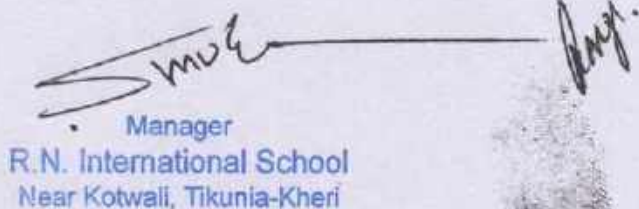 Manager
R.N. International School
Near Kotwali, Tikunia-Kheri